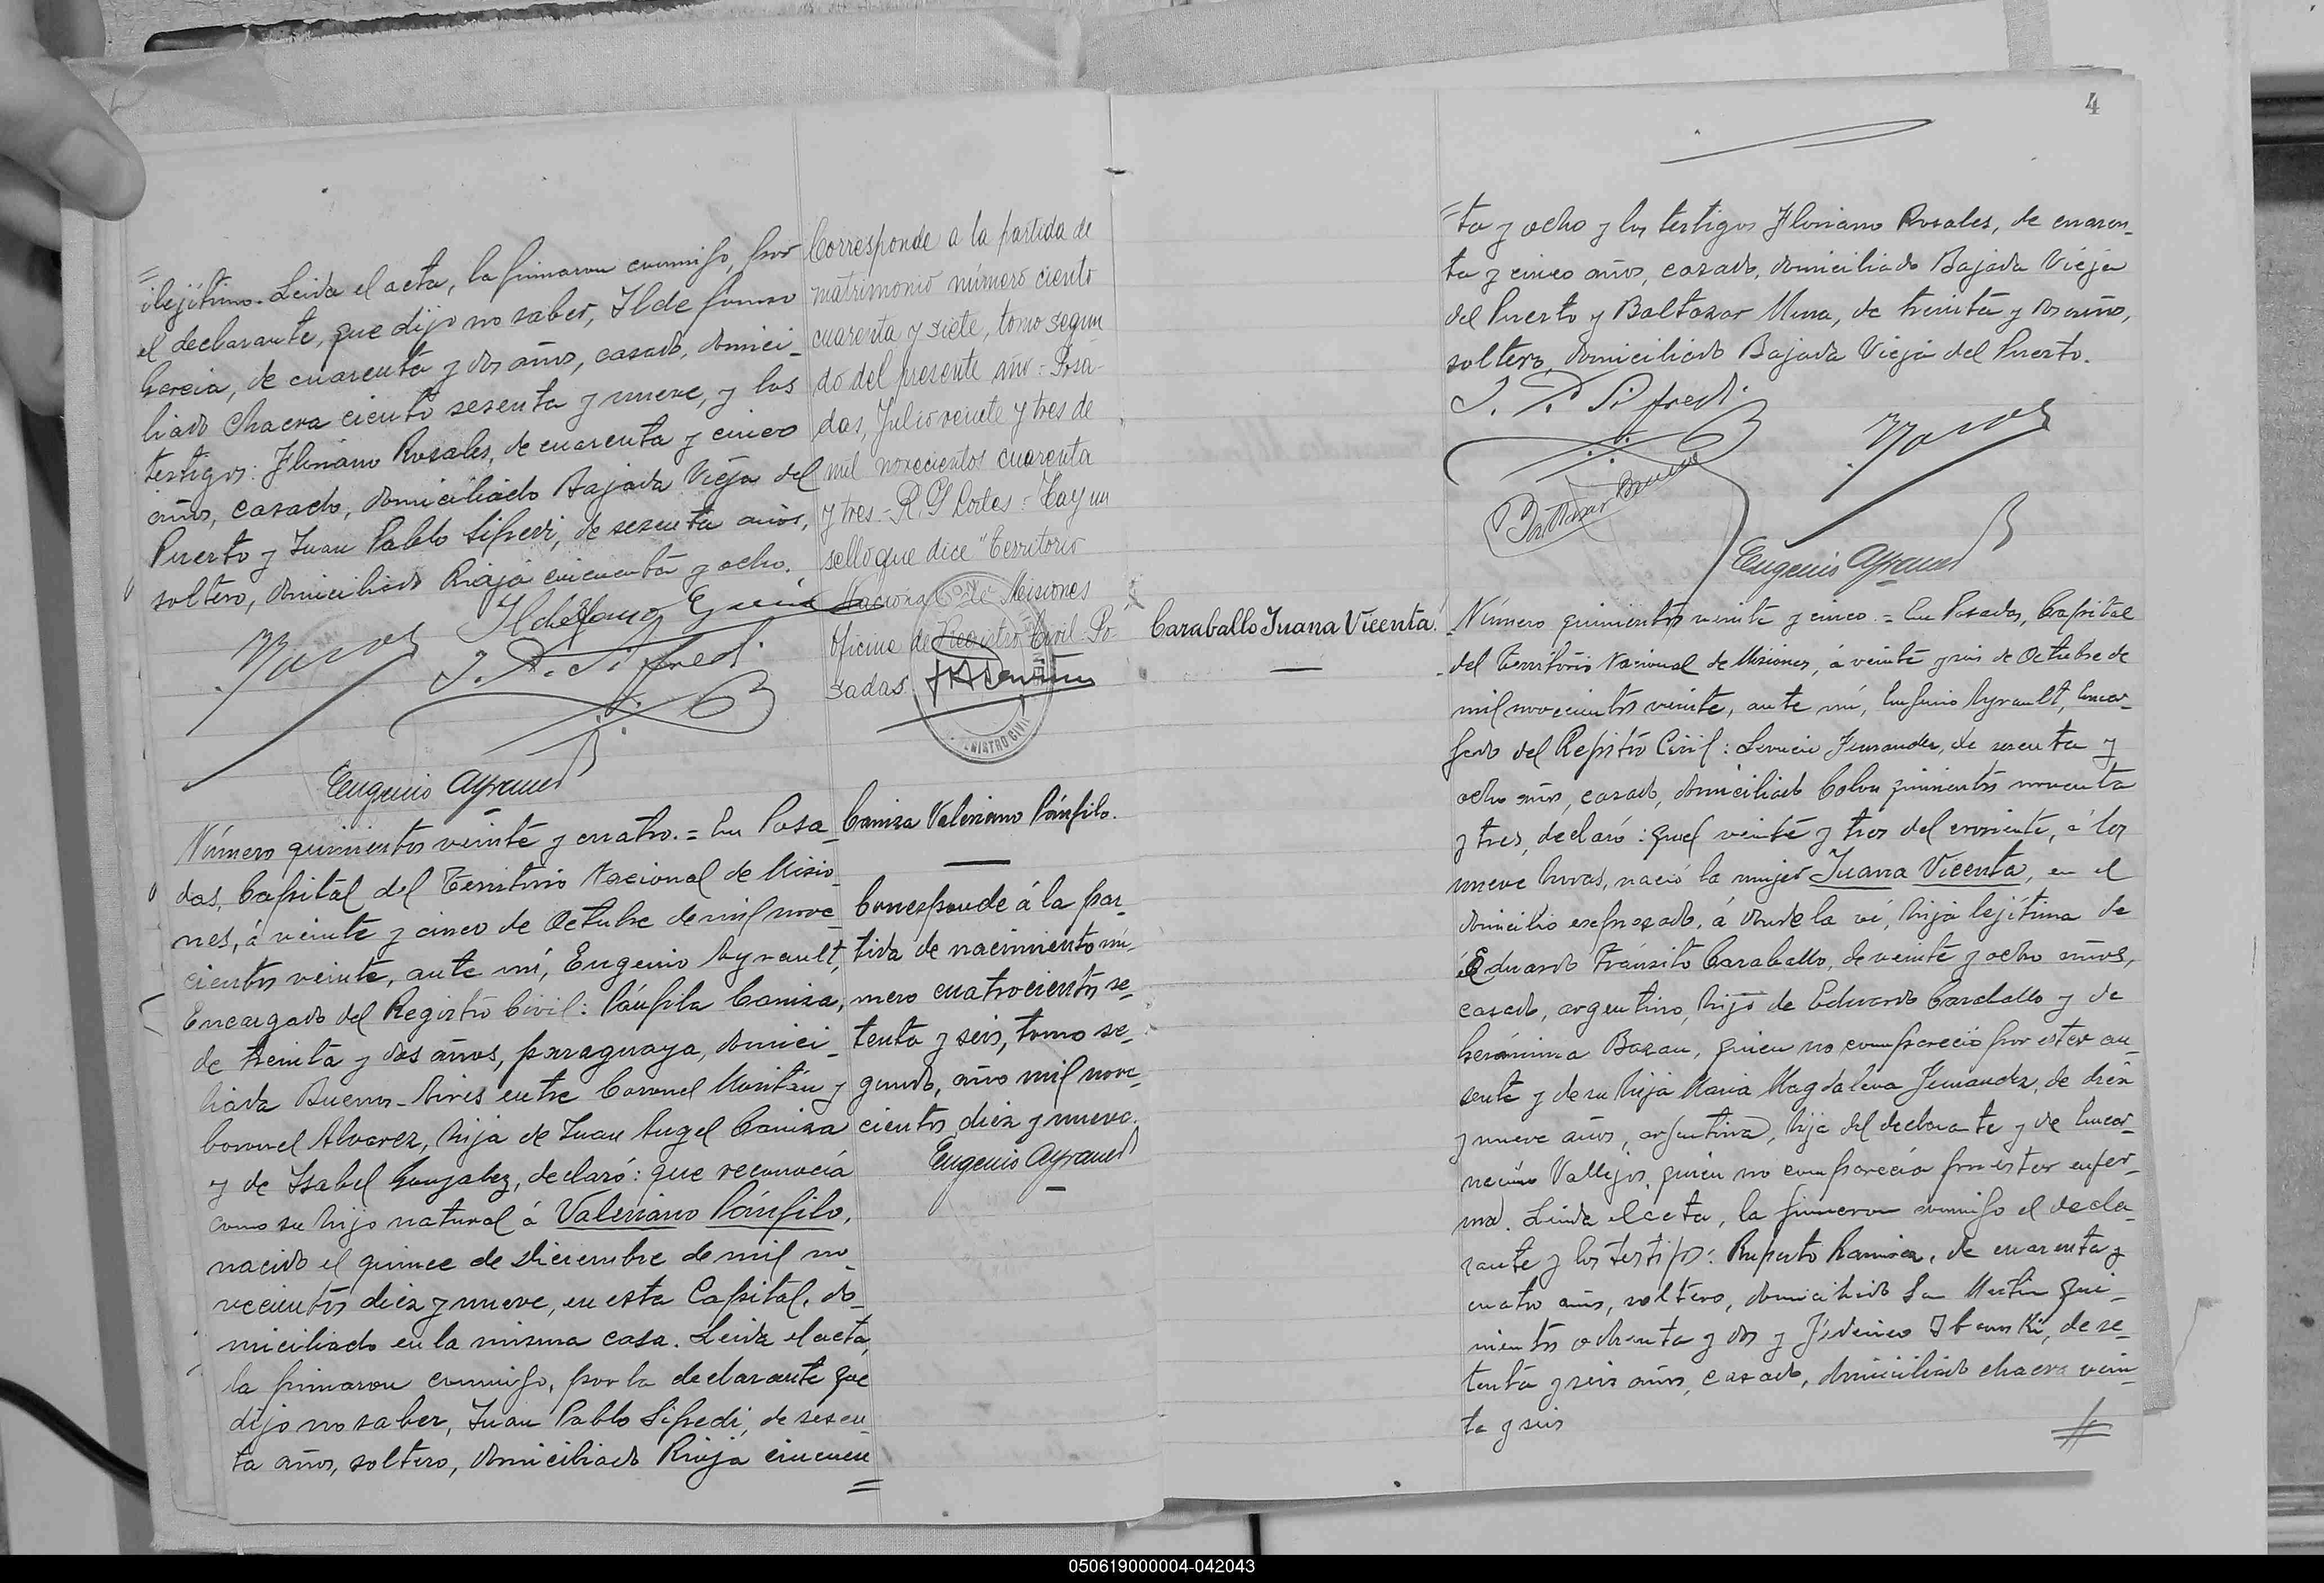 ilejítimo. Leida el acta, la firmaron conmigo, por
el declarante, que dijo no saber, Ildefonso
Garcia, de cuarenta y dos años, casado, domici-
liado Chacra ciento sesenta y nueve, y los
testigos: Floriano Rosales, de cuarenta y cinco
años, casado, domiciliado Bajada Vieja del
Puerto y Juan Pablo Sifredi, de sesenta años,
soltero, domiciliado Rioja cincuenta y ocho.
Ildefonso Garcia
J. P. Sifredi
Eugenio Ayrault
Corresponde a la partida de
matrimonio número ciento
cuarenta y siete, tomo segun
do del presente año - Posa-
das, Julio veinte y tres de
mil novecientos cuarenta
y tres - R. G Cortes - Hay un
sello que dice "Territorio
Nacional de Misiones
Oficina de Registro Civil - Po
sadas
Número quinientos veinte y cuatro. = En Posa-
das, Capital del Territorio Nacional de Misio-
nes, á veinte y cinco de Octubre de mil nove-
cientos veinte, ante mí, Eugenio Ayrault,
Encargado del Registro Civil: Pánfila Caniza,
de treinta y dos años, paraguaya, domici-
liada Buenos-Aires entre Coronel Maritán y
Coronel Alvarez, hija de Juan Angel Caniza
y de Isabel Gonzalez, declaró: que reconocía
como su hijo natural á Valeriano Pánfilo,
nacido el quince de Diciembre de mil no-
vecientos diez y nueve, en esta Capital, do-
miciliado en la misma casa. Leida el acta,
la firmaron conmigo, por la declarante que
dijo no saber, Juan Pablo Sifredi, de sesen-
ta años, soltero, domiciliado Rioja cincuen
=
Caniza Valeriano Pánfilo.
Corresponde á la par-
tida de nacimiento nú-
mero cuatrocientos se-
tenta y seis, tomo se-
gundo, año mil nove-
cientos diez y nueve.
Eugenio Ayrault
4
=ta y ocho y los testigos Floriano Rosales, de cuaren-
ta y cinco años, casado, domiciliado Bajada Vieja
del Puerto y Baltazar, de treinta y dos años,
soltero, domiciliado Bajada Vieja del Puerto.
J. P. Sifredi
Baltazar
Eugenio Ayrault
Caraballo Juana Vicenta.
Número quinientos veinte y cinco. = En Posadas, Capital
del Territorio Nacional de Misiones, á veinte y seis de Octubre de
mil novecientos veinte, ante mí, Eugenio Ayrault, Encar-
gado del Registro Civil: Fernandez, de sesenta y
ocho años, casado, domiciliado Colon quinientos noventa
y tres, declaró: que el veinte y tres del corriente, á las
nueve horas, nació la mujer Juana Vicenta, en el
domicilio expresado, á donde la ví, hija lejítima de
Eduardo Tránsito Caraballo, de veinte y ocho años,
casado, argentino, hijo de Eduardo Caraballo y de
Gerónima Bazan, quien no compareció por estar au-
sente y de su hija Maria Magdalena Fernandez, de diez
y nueve años, argentina, hija del declarante y de Encar-
nación Vallejos, quien no compareció por estar enfer-
ma. Leida el acta, la firmaron conmigo el decla-
rante y los testigos: Ruperto Ramirez, de cuarenta y
cuatro años, soltero, domiciliado San Martin qui-
nientos ochenta y dos y Federico, de se-
tenta y seis años, casado, domiciliado chacra vein-
te y seis
050619000004-042043